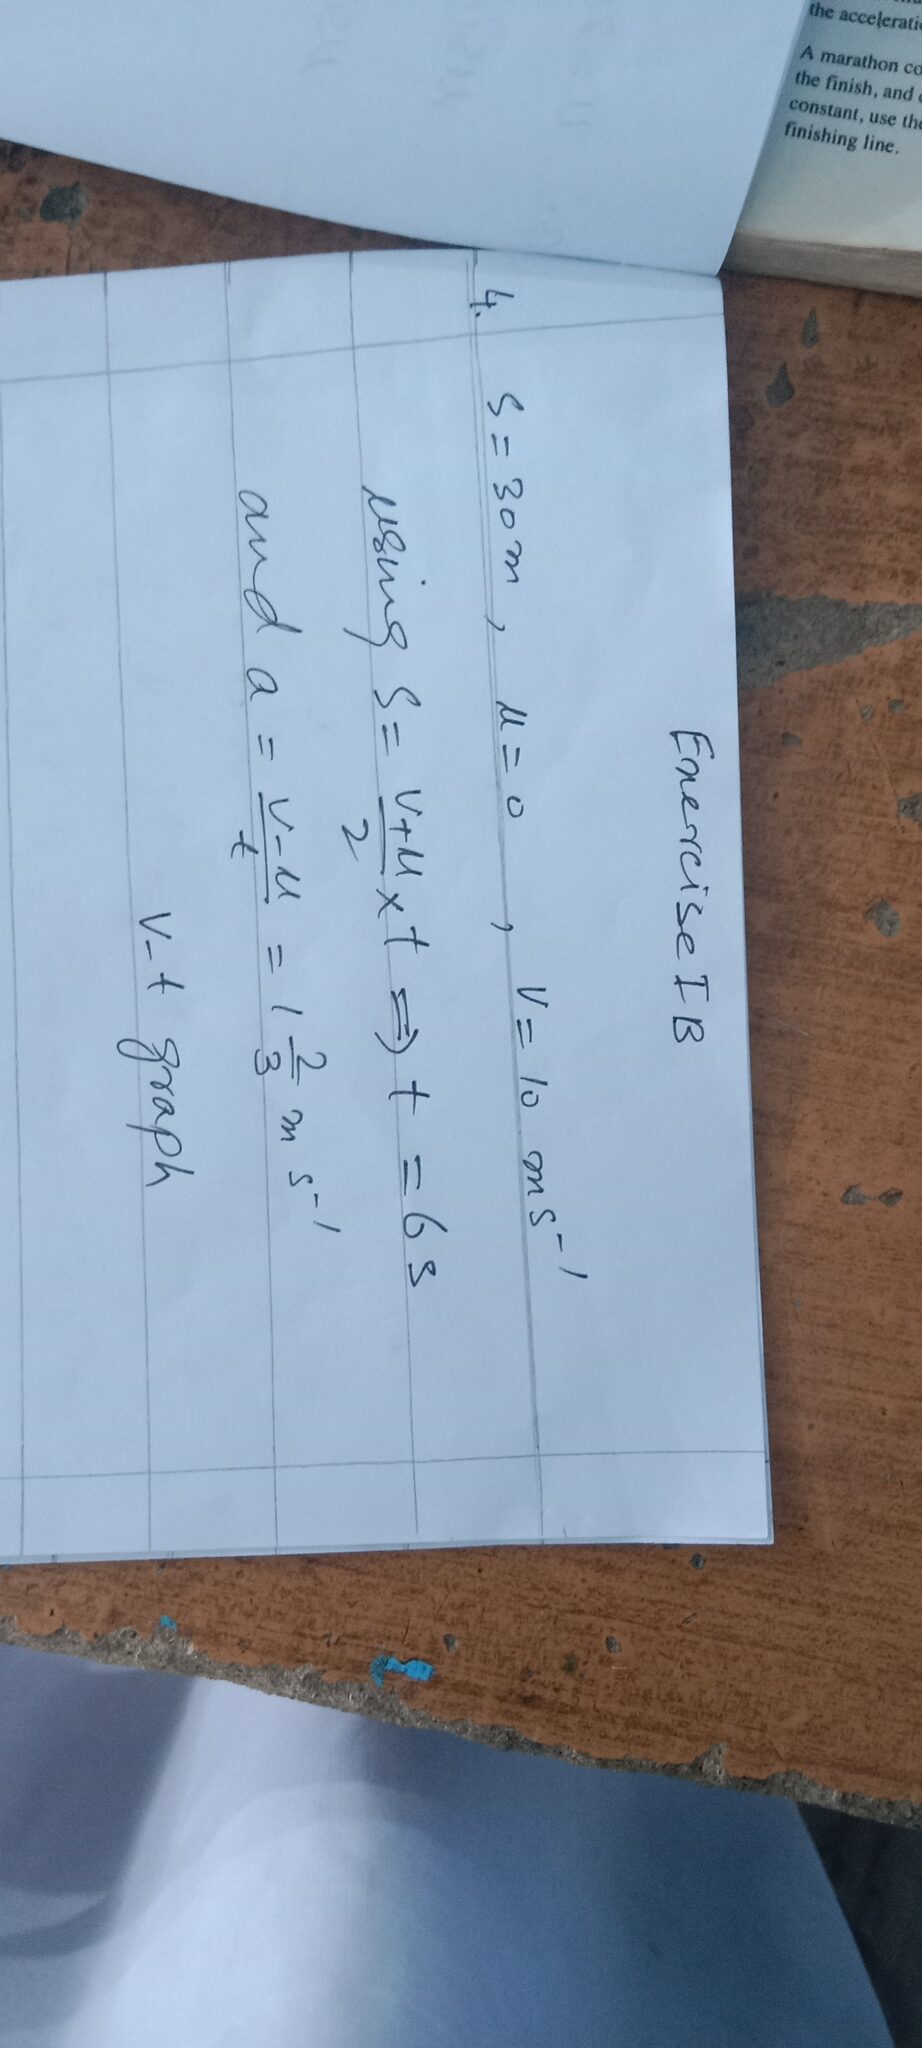 the accelerati
A marathon co
the finish, and
constant, use the
finishing line.
Exercise I B
4. S = 30 m , u = 0 , v = 10 ms⁻¹
using S = v+u/2 × t ⇒ t = 6s
and a = v-u/t = 1 2/3 m s⁻¹
v-t graph